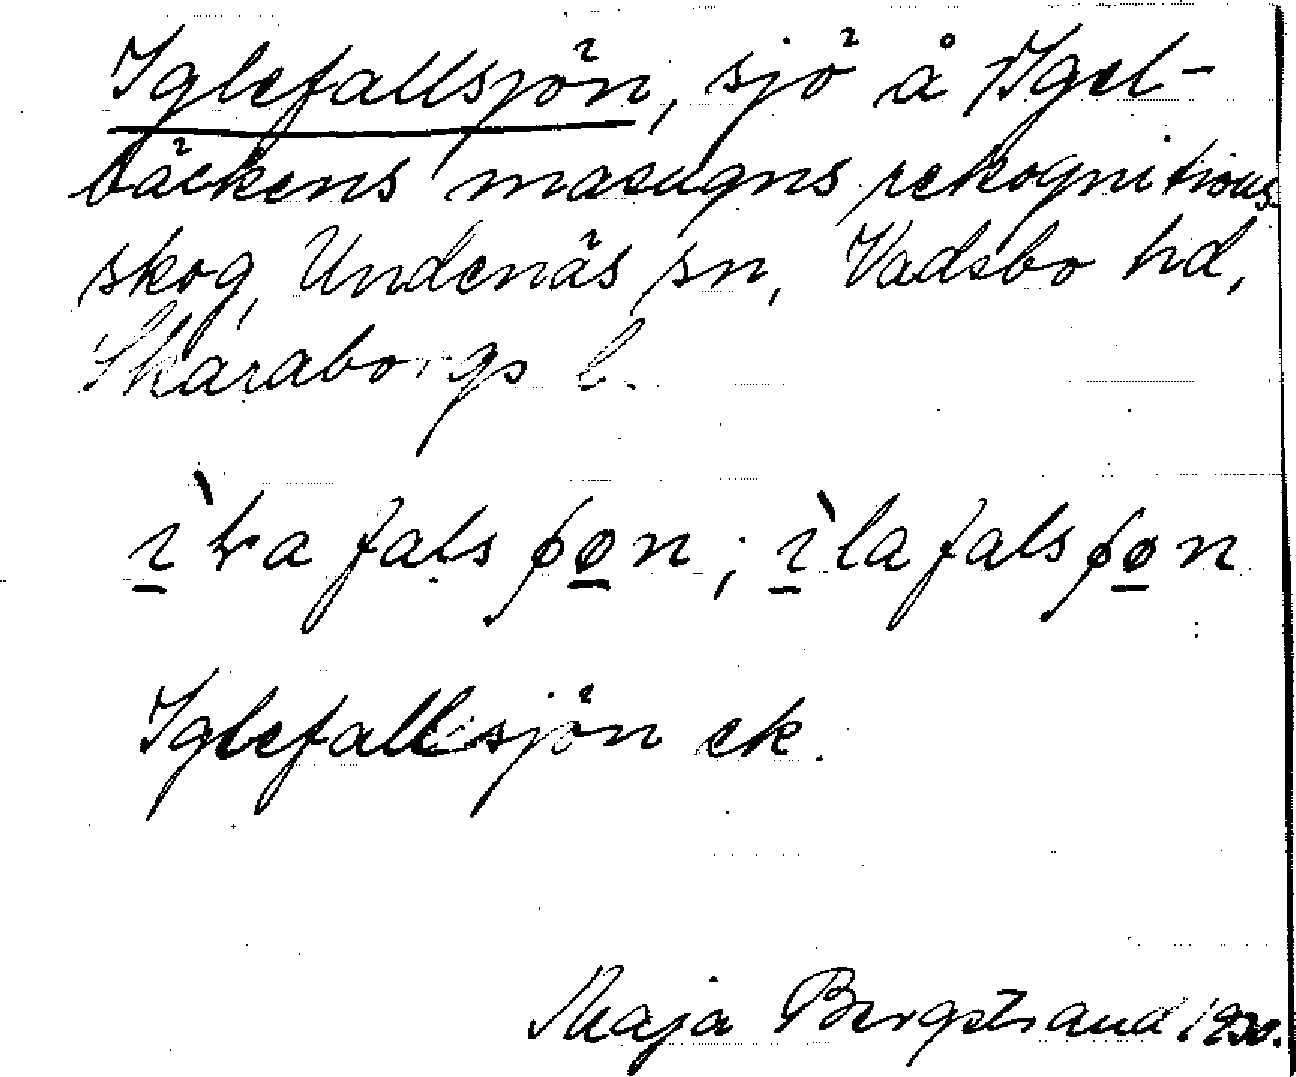 Iglefallsjön, sjö å Igel-
bäckens masugns rekognitions-
skog, Undenäs sn, Vadsbo hd,
Skaraborgs l.
Iglefallsjön ek.
Maja Bergstrand 1930.